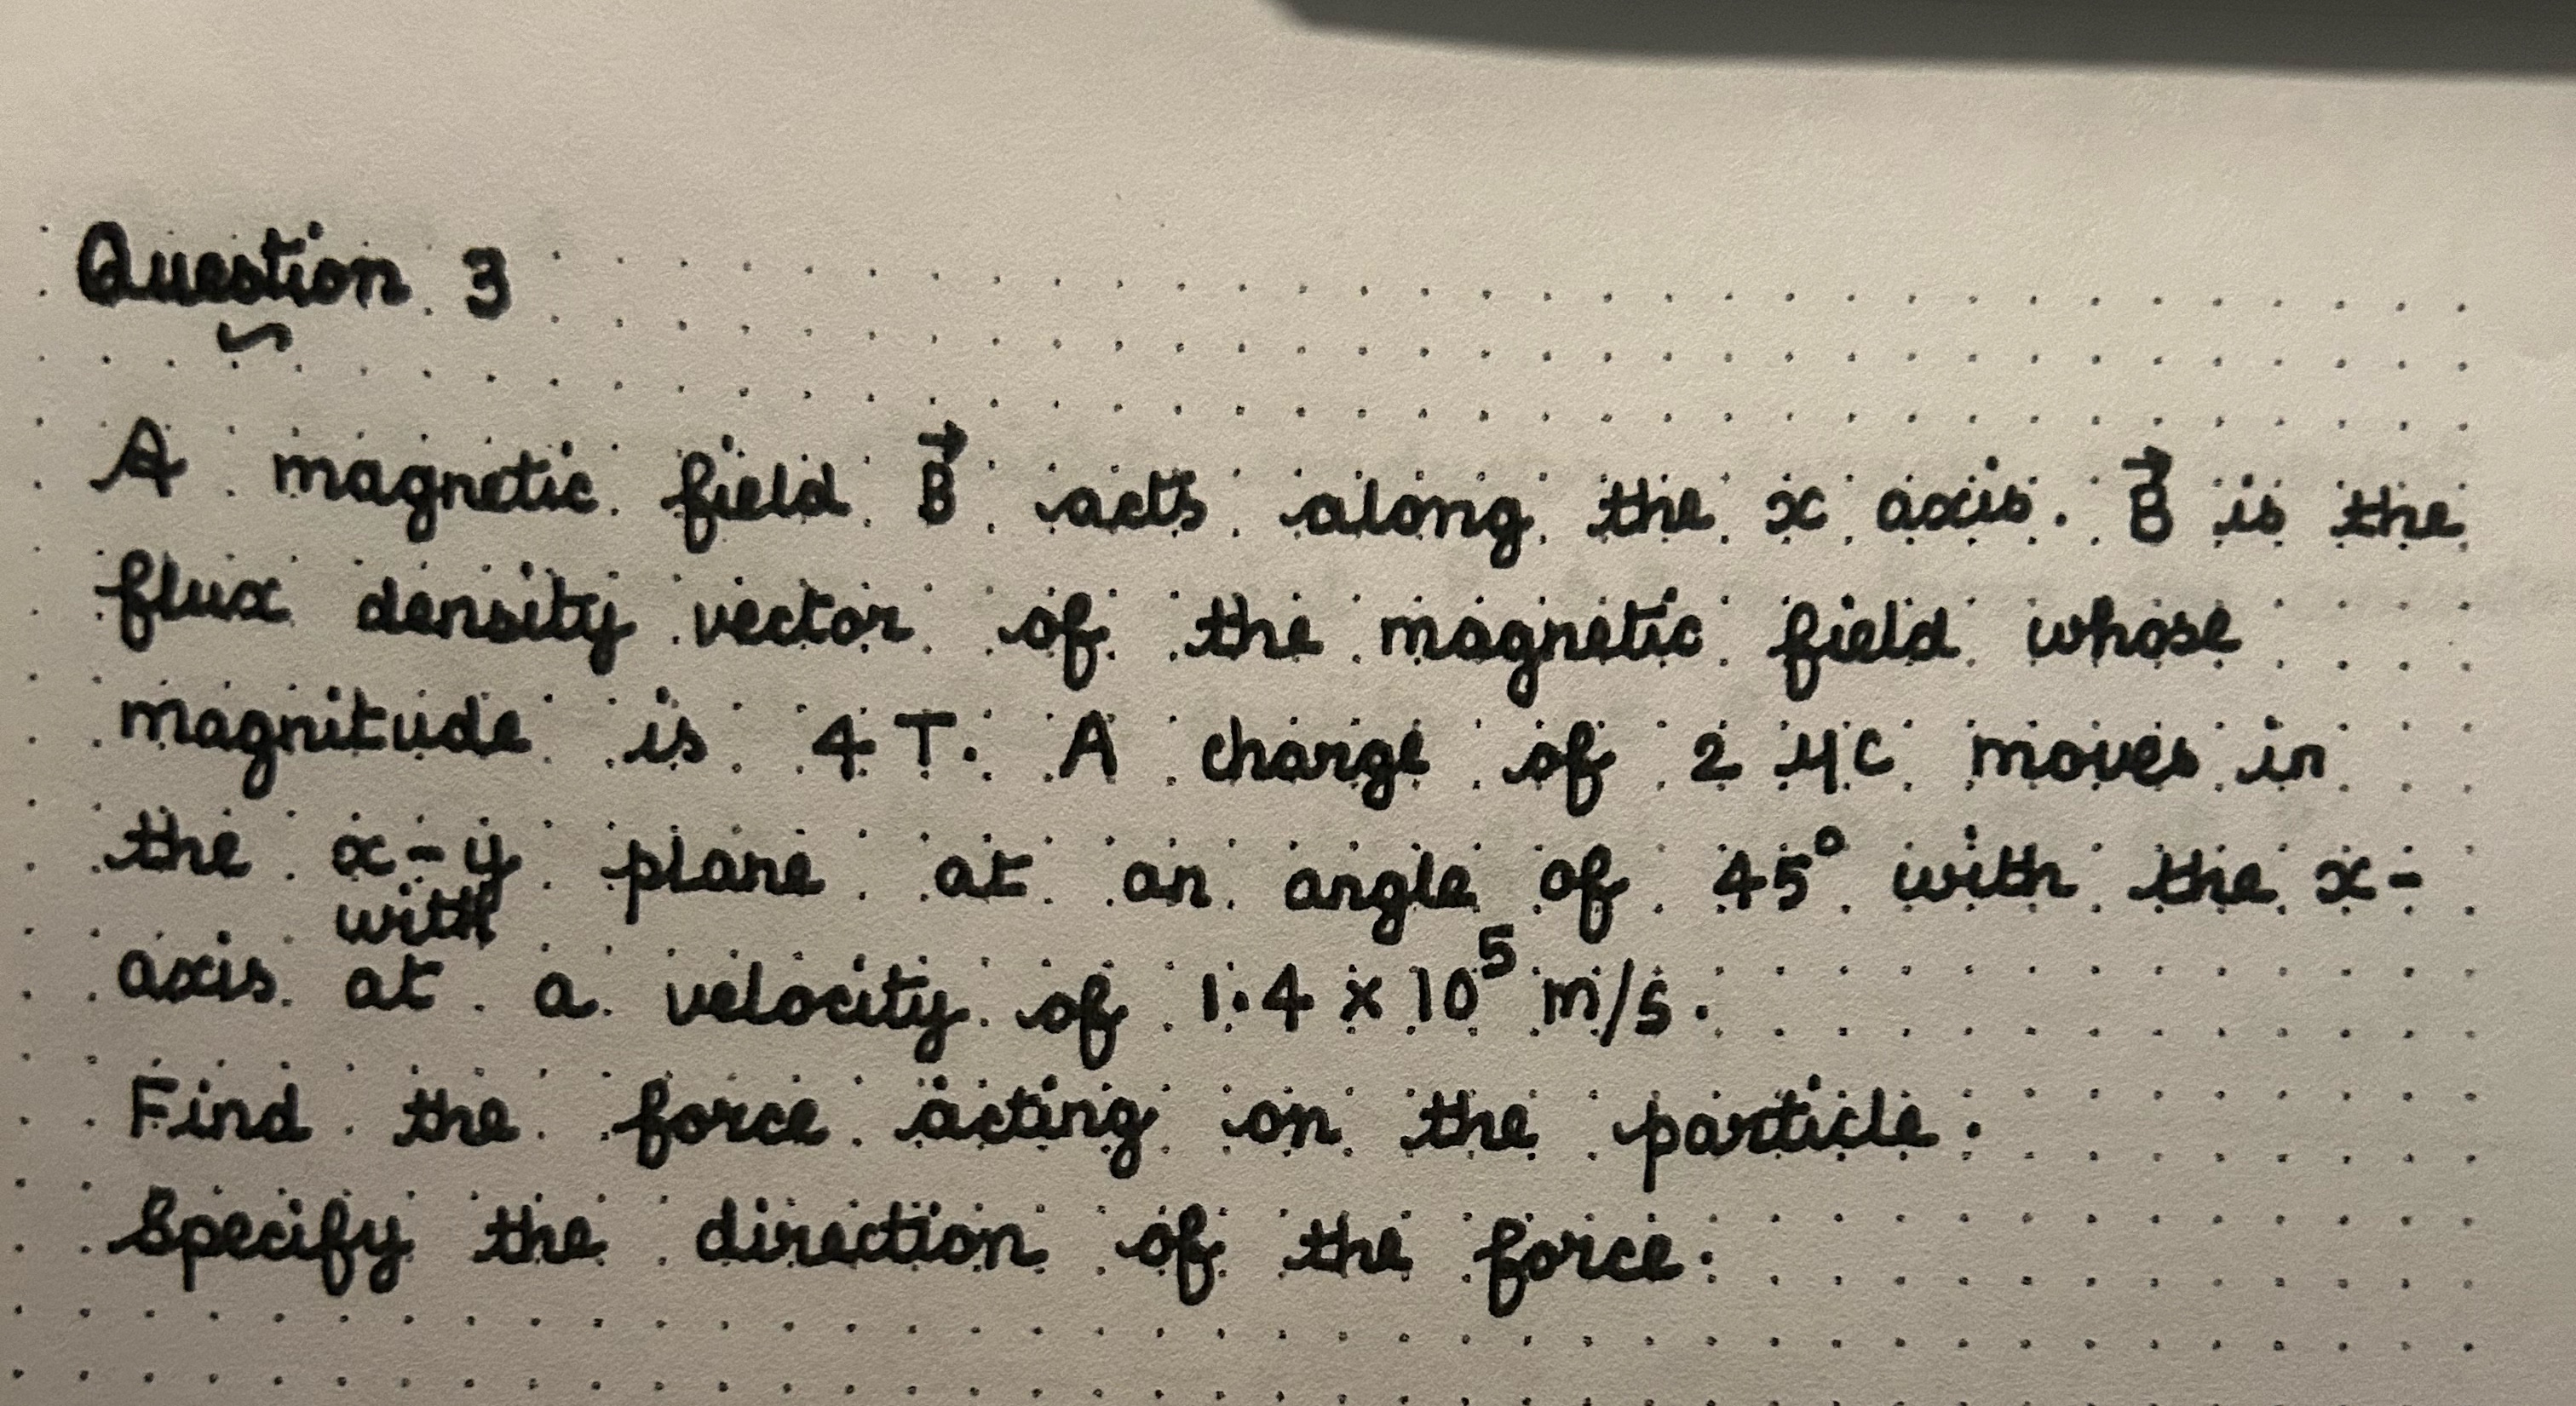 Question 3
A magnetic field B⃗ acts along the x axis. B⃗ is the
flux density vector of the magnetic field whose
magnitude is 4 T. A charge of 2 μC moves in
the x-y plane at an angle of 45° with the x-
with
axis at a velocity of 1.4 × 10⁵ m/s.
Find the force acting on the particle.
Specify the direction of the force.